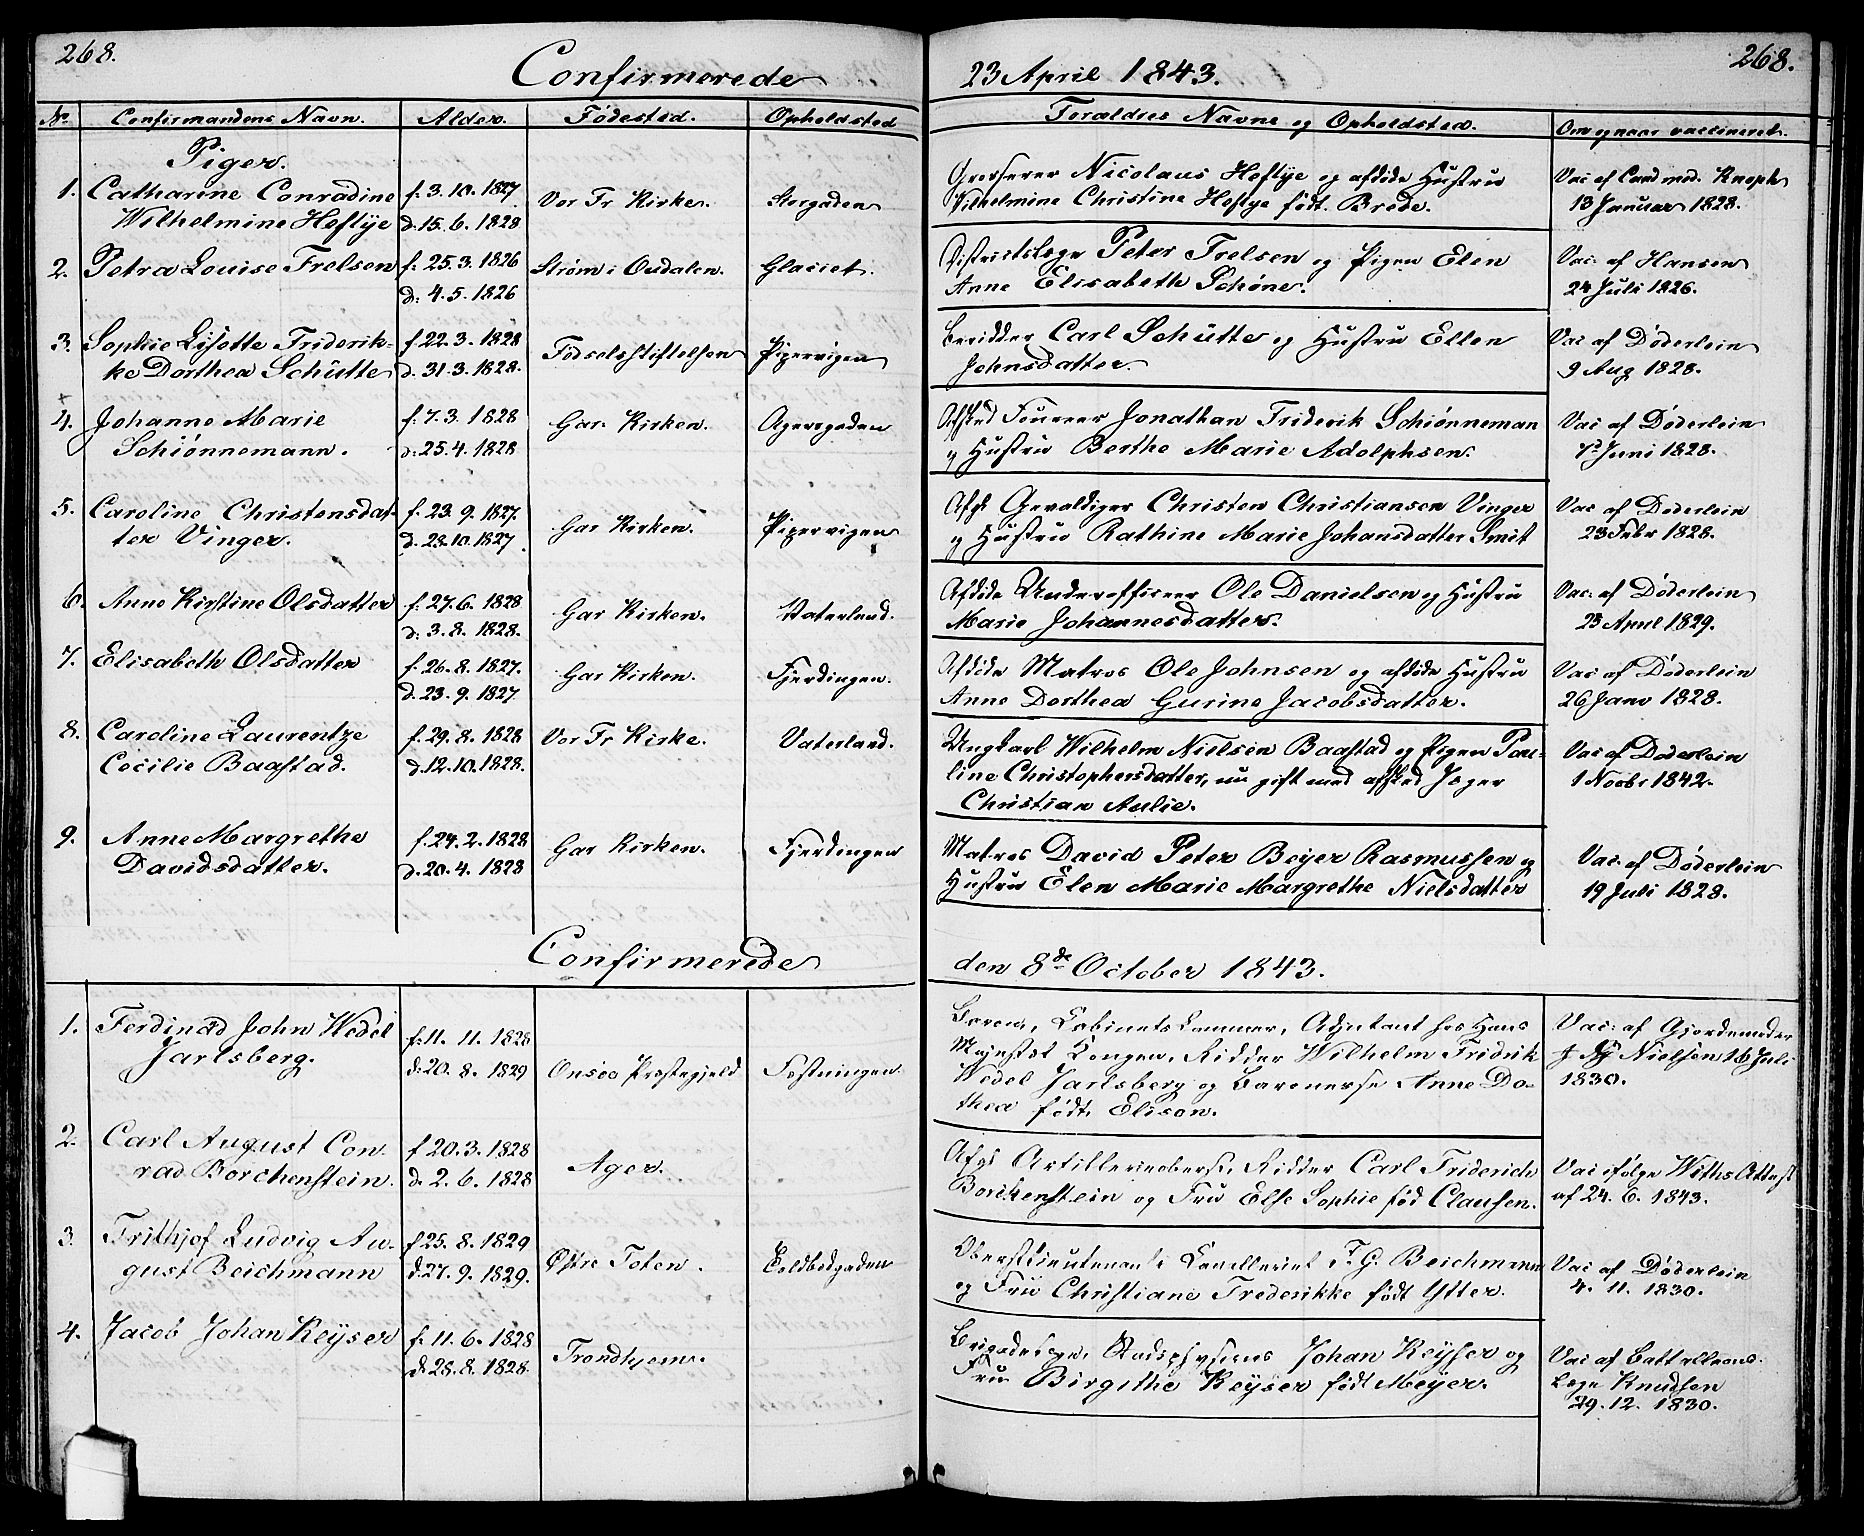 268.
Confirmerede
23 April 1843.
268.
No. Confirmandens Navn. Alder. Fødested. Opholdsted
Forældres Navne og Opholdsted. Om og naar vaccineret.
Piger.
1. Catharine Conradine f. 3. 10. 1827 Vor Fr Kirke. Storgaden
Wilhelmine Heftye d. 15. 6. 1828
Grosserer Nicolaus Heftye og afdøde Hustru Vac af Cand med. Knoph
Vilhelmine Christine Heftye født Brede. 13 Januar 1828.
2. Petra Louise Frelsen f. 25. 3. 1826 Strøm i Oudalen. Glaciet.
d. 4. 5. 1826
Districtslæge Peter Frelsen og Pigen Elen Vac. af Hansen
Anne Elisabeth Schøne. 24 Juli 1826.
3. Sophie Lisette Friderik- f 22. 3. 1828 Fødselsstiftelsen Pipervigen
ke Dorthea Schütte d. 31. 3. 1828.
Beridder Carl Schütte og Hustru Ellen Vac af Døderlein
Johnsdatter. 9 Aug 1828.
4. Johanne Marie f. 7. 3. 1828 Gar. Kirken. Agersgaden
Schiønnemann. d. 25. 4. 1828
Afsked Fourer Jonathan Friderik Schiønneman Vac af Døderlein
og Hustru Berthe Marie Adolphsen. Juni 1828.
5. Caroline Christensdat- f. 23. 9. 1827. Gar Kirken. Pipervigen
ter Vinger. d. 28. 10. 1827
Afsk Gevaldiger Christen Christiansen Vinger Vac af Døderlein
og Hustru Kathine Marie Johansdatter Smit 23 Febr 1828.
6. Anne Kirstine Olsdatter f. 27. 6. 1828 Gar Kirken. Vaterland.
d. 3. 8. 1828.
Afdøde Underofficer Ole Danielsen og Hustru Vac. af Døderlein
Marie Johannesdatter. 23 April 1829.
7. Elisabeth Olsdatter f. 26. 8. 1827. Gar Kirken. Fjerdingen.
d. 23. 9. 1827
Afdøde Matros Ole Johnsen og afdøde Hustru Vac af Døderlein
Anne Dorthea Gurine Jacobsdatter. 26 Janv 1828.
8. Caroline Laurentze f. 29. 8. 1828 Vor Fr Kirke. Vaterland.
Cecilie Baastad. d. 12. 10. 1828.
Ungkarl Wilhelm Nielsen Baastad og Pigen Pau- Vac af Døderlein
line Christophersdatter, nu gift med afsked Jæger 1 Novbr 1842.
Christian Aulie.
9. Anne Margrethe f. 24. 2. 1828 Gar Kirken. Fjerdingen
Davidsdatter. d. 20. 4. 1828
Matros David Peter Beyer Rasmussen og Vac. af Døderlein
Hustru Elen Marie Margrethe Nielsdatter 19 Juli 1828.
Confirmerede
den 8de October 1843.
1. Ferdinad John Wedel f. 11. 11. 1828 Onsøe Præstegjeld Festningen
Jarlsberg. d. 20. 8. 1829
Baron, Cabinetskammer, Adjutant hos Hans Vac. af Gjordemoder
Majestæt Kongen, Ridder Wilhelm Fridrik Nielsen 16 Juli
Wedel Jarlsberg og Baronesse Anne Do- 1830.
thea født Elison.
2. Carl August Con- f 20. 3. 1828 Ager.
rad Borchenstein. d. 2. 6. 1828
Afsk Artillerieoberst, Ridder Carl Friderich Vac ifølge Withs Attest
Borchenstein og Fru Else Sophie fød Clausen. af 24. 6. 1843.
3. Frithjof Ludvig Au- f 25. 8. 1829 Østre Toten. Toldbodgaden
gust Beichmann d. 27. 9. 1829.
Oberstlieutenant i Cavalleriet F. G. Beichmann Vac af Døderlein
og Fru Christiane Frederikke født Ytter. 4. 11. 1830.
4. Jacob Johan Keyser f. 11. 6. 1828 Trondhjem.
d. 28. 8. 1828
Brigadelæge, Stadsphysicus Johan Keyser og Vac af Battallions-
Fru Birgithe Keyser født Meyer. Læge Knudsen
29. 12. 1830.